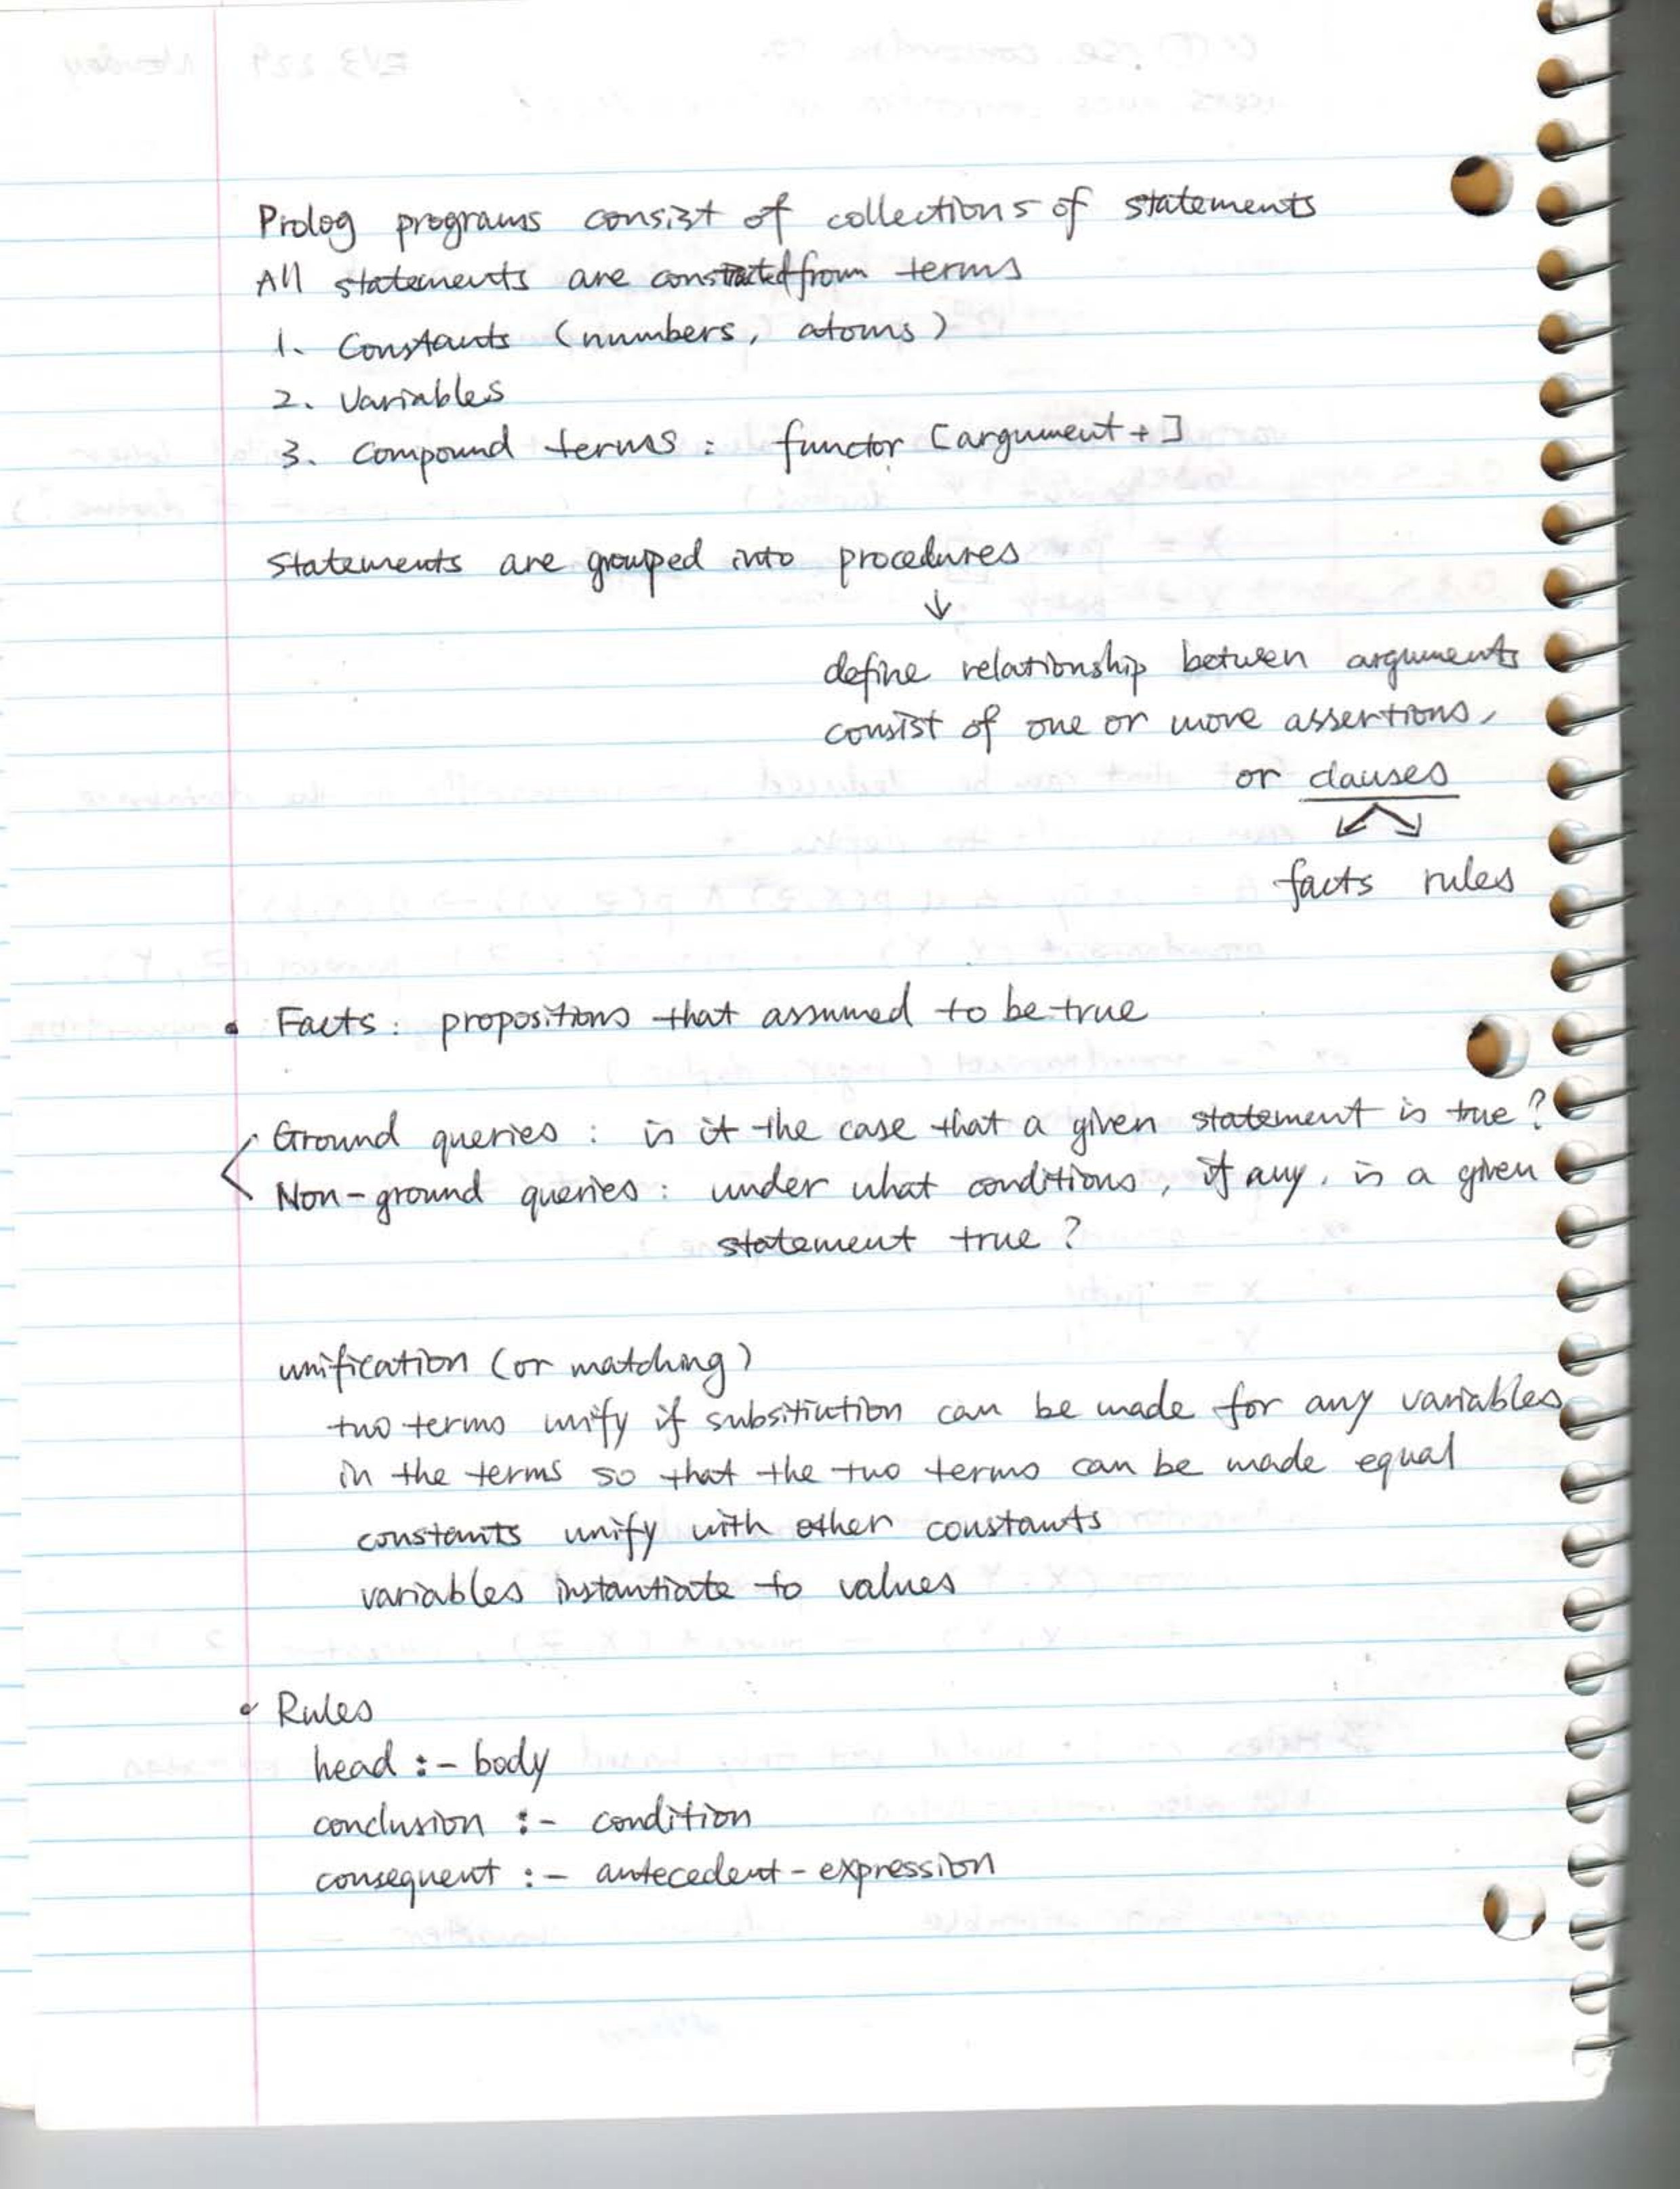 Prolog programs consist of collections of statements
All statements are constructed from terms
1. Constants (numbers, atoms)
2. Variables
3. Compound terms : functor [argument + ]
Statements are grouped into procedures
↓
define relationship between arguments
consist of one or more assertions,
or clauses
facts rules
• Facts : propositions that assumed to be true
Ground queries : is it the case that a given statement is true ?
Non-ground queries : under what conditions, if any, is a given
statement true ?
unification (or matching)
two terms unify if subsitiution can be made for any variables
in the terms so that the two terms can be made equal
constants unify with other constants
variables instantiate to values
• Rules
head :- body
conclusion :- condition
consequent :- antecedent - expression